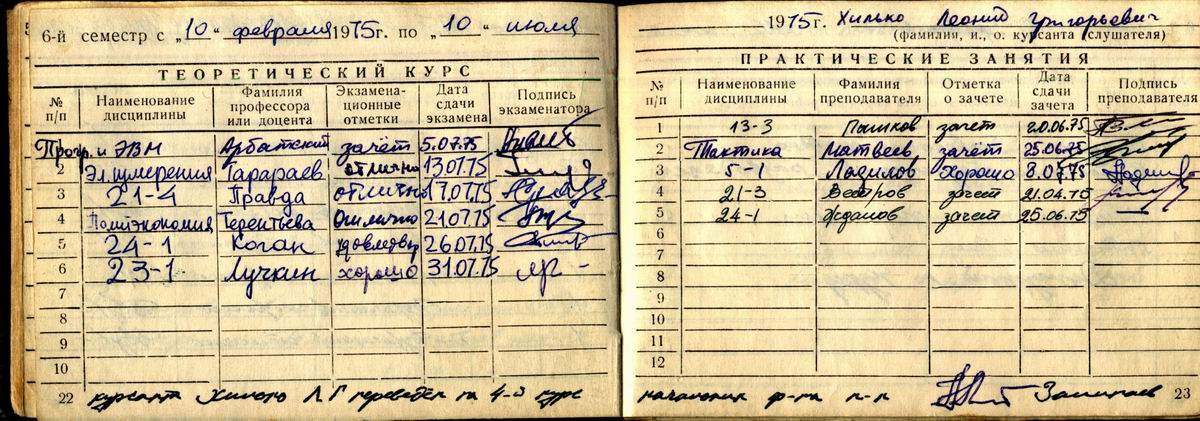 6-й семестр с „10" февраля 1975г. по „10" июля
ТЕОРЕТИЧЕСКИЙ КУРС
№ п/п Наименование дисциплины Фамилия профессора или доцента Экзамена-ционные отметки Дата сдачи экзамена Подпись экзаменатора
1 Прогр. и ЭВМ Арбатский зачёт 5.07.75
2 Эл.измерения Тарараев отлично 13.07.75
3 21-4 Правда отлично 17.07.75
4 Политэкономия Терентьева отлично 21.07.75
5 24-1 Коган удовлетвор 26.07.75
6 23-1 Лучкин хорошо 31.07.75
7
8
9
10
22 курсант Хилько Л Г переведен на 4-й курс
1975г. Хилько Леонид Григорьевич
(фамилия, и., о. курсанта (слушателя)
ПРАКТИЧЕСКИЕ ЗАНЯТИЯ
№ п/п Наименование дисциплины Фамилия преподавателя Отметка о зачете Дата сдачи зачета Подпись преподавателя
1 13-3 Пашков зачет 20.06.75
2 Тактика Матвеев зачёт 25.06.75
3 5-1 Ладилов хорошо 8.07.75
4 21-3 зачет 21.04.75
5 24-1 Жданов зачет 25.06.75
6
7
8
9
10
11
12
начальник ф-та п-к 23